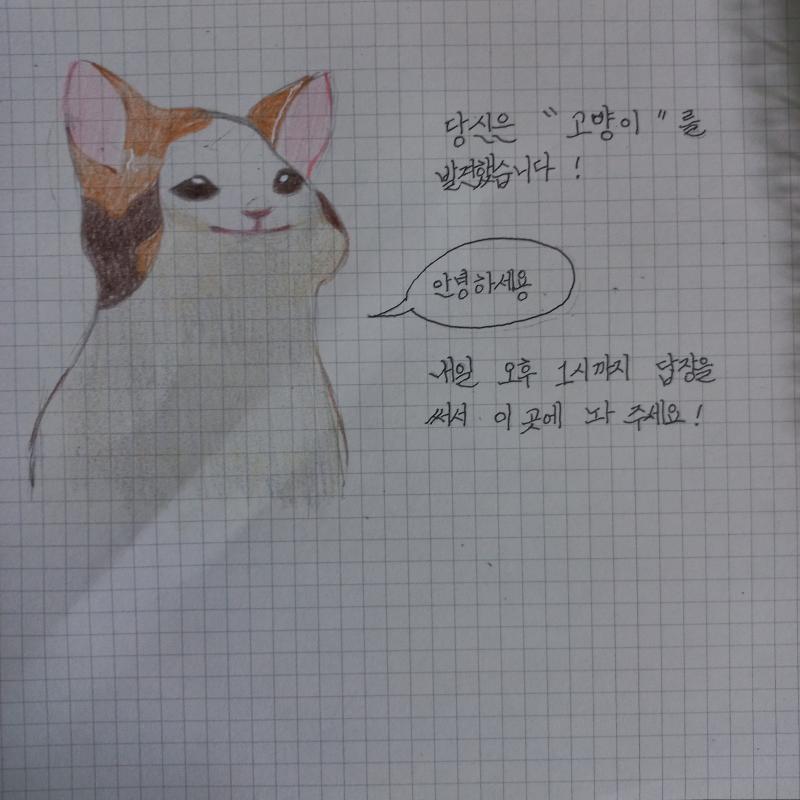 당신은 "고양이"를
발견했습니다!
안녕하세용
내일 오후 1시까지 답장을
써서 이 곳에 놔 주세요!